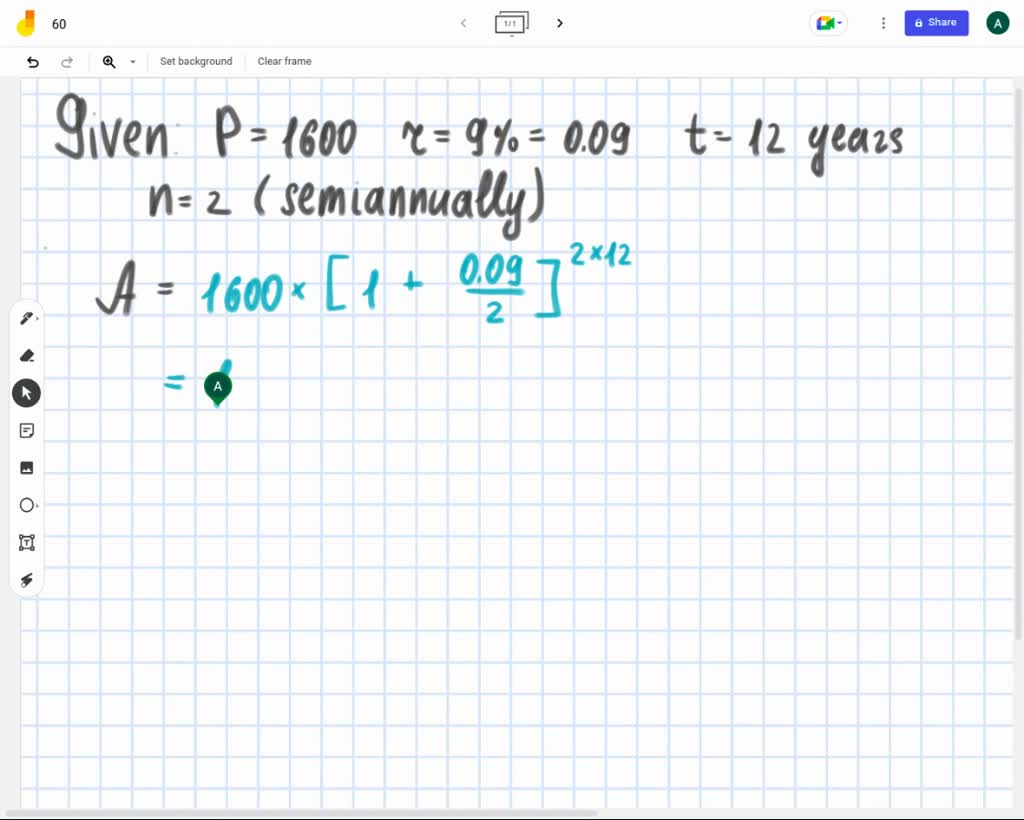 60
1/1
Share
A
Set background
Clear frame
Given: P = 1600 r = 9% = 0.09 t = 12 years
n = 2 (semiannually)
A = 1600 × [ 1 + 0.09/2 ]^2×12
=
A